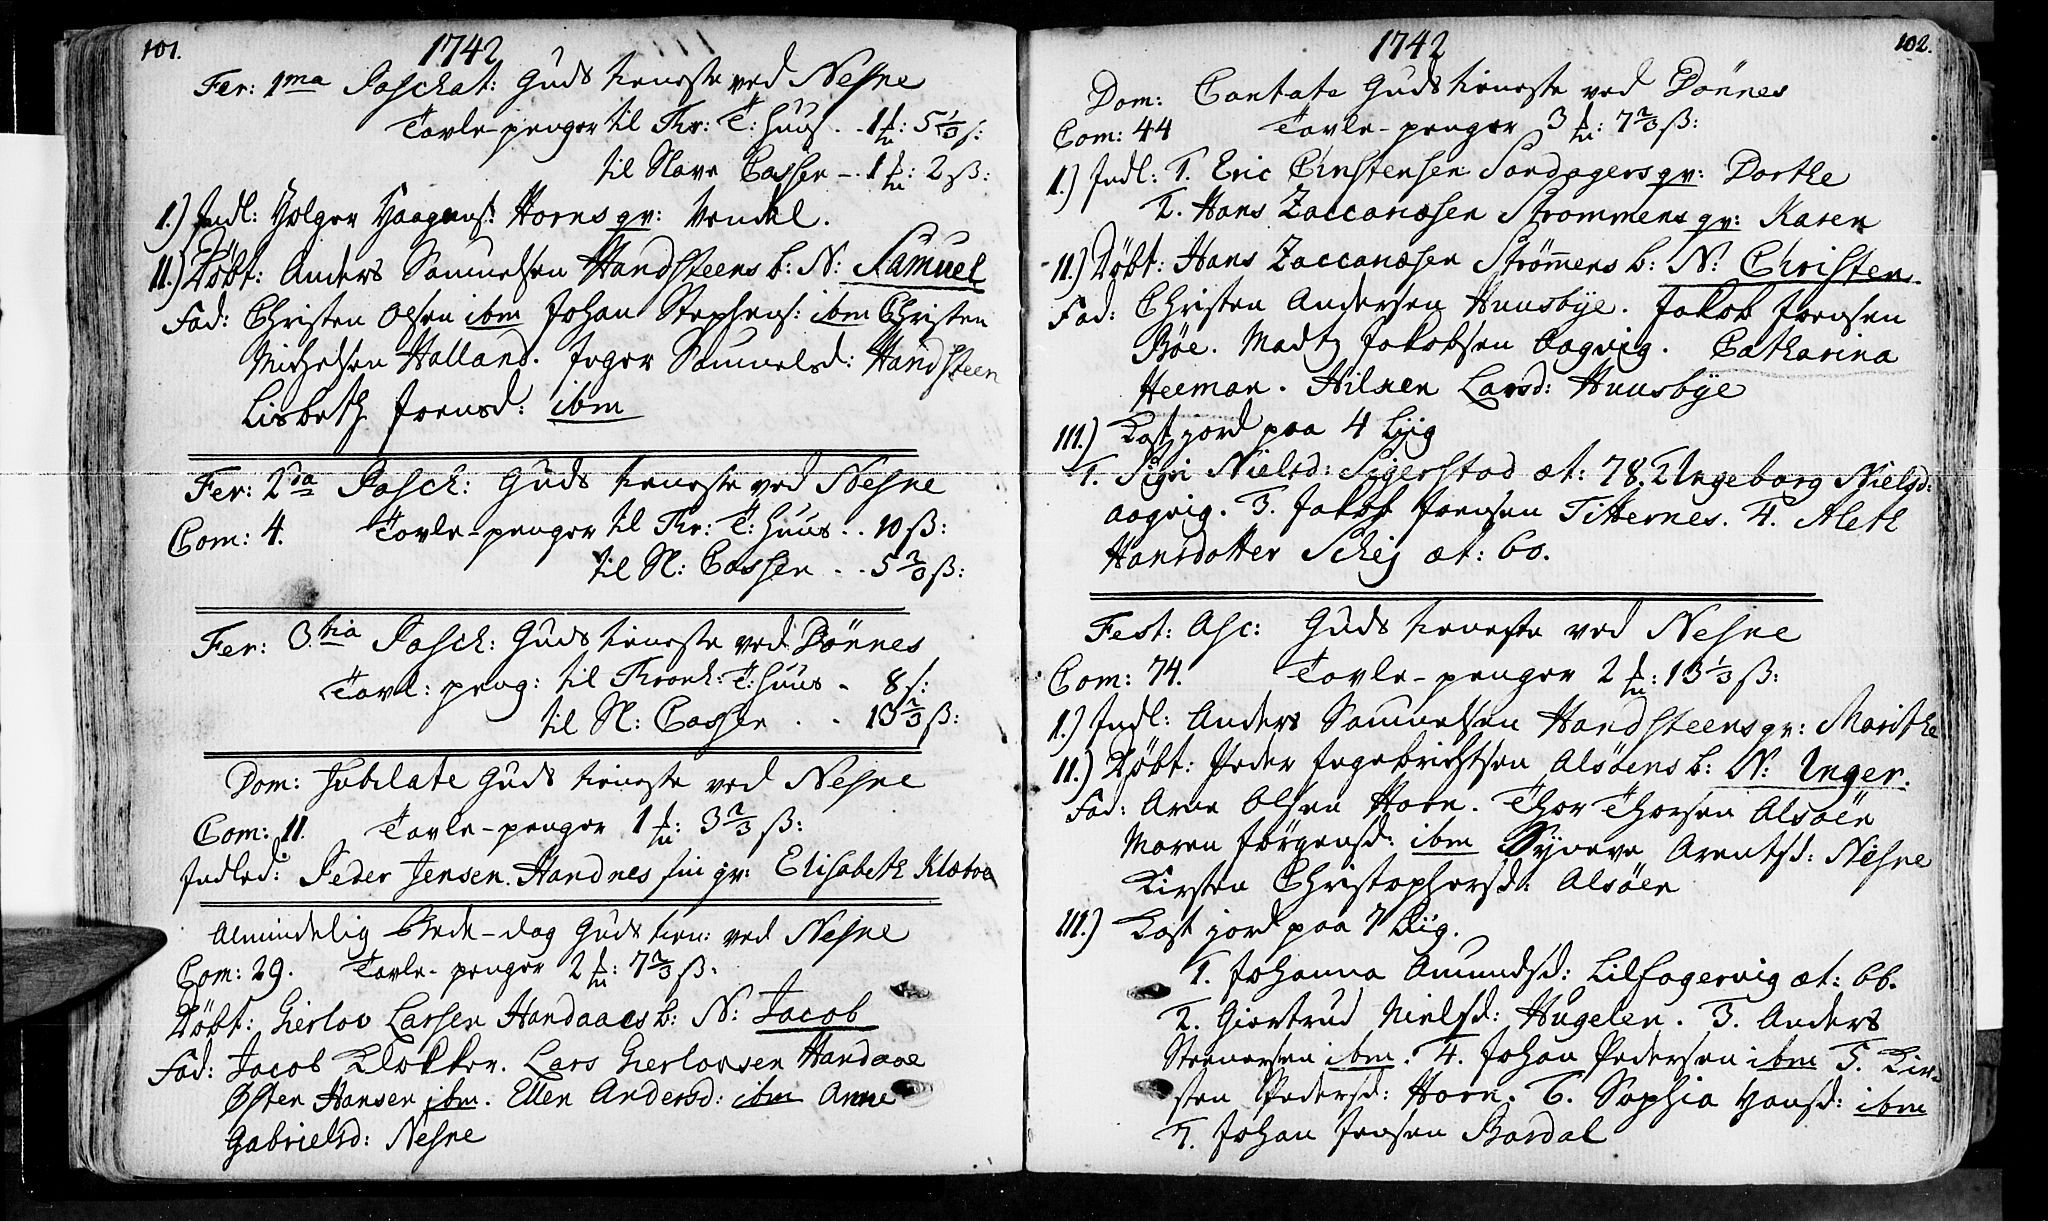 101.
1742
Fer: 1ma Paschat: Guds tieneste ved Nesne
Tavle-penger til Thr: T: huus . . 1 : 5 1/3 s:
til Slave Cassen - . 1 : 2 ß:
I.) Indl: Holger Haagens: Horns qv: Vendel.
II.) Døbt: Anders Samuelsen Handsteens b: N: Samuel
Fad: Christen Olsen ibm Johan Stephens: ibm Christen
Michelsen Halland. Inger Samuelsd: Handsteen
Lisbeth Jensd: ibm
Fer: 2da Pasch: Guds tieneste ved Nesne
Com: 4. Tavle-penger til Thr: T: huus . . 10 ß:
til Sl: Cassen . . 5 2/3 ß:
Fer: 3.tia Pasch: Guds tieneste ved Dönnes
Tavl: peng: til Tronh: T: huus . 8 s:
til Sl: Cassen . . 13 2/3 ß:
Dom: Jubilate Guds tieneste ved Nesne
Com: 11. Tavle-penger 1 : 3 2/3 ß:
Indled: Peder Jensen Handnes sin qv: Elisabeth Klæboe
Almindelig Bede-dag Guds tien: ved Nesne
Com: 29. Tavle-penger 2 : 7 2/3 ß:
Døbt: Gierlov Larsen Handaaes b: N: Jacob
Fad: Jacob Klokker. Lars Gierlovsen Handaae
Østen Hansen ibm. Ellen Andersd: ibm Anne
Gabrielsd: Nesne
102.
1742
Dom: Cantate Guds tieneste ved Dönnes
Com: 44 Tavle-penger 3 : 7 2/3 ß:
I.) Indl: 1. Eric Christensen Sandagers qv: Dorthe
2. Hans Zaccariæsen Strommens qv: Karen
II.) Døbt: Hans Zaccariæsen Strømens b: N: Christen
Fad: Christen Andersen Huusbye. Jakob Jensen
Böe. Madtz Jakobsen Aagvig. Catharina
Heeman. Hilken Larsd: Huusbÿe
III.) Kast jord paa 4 Liig
1. Sigri Nielsd: Sigerstad æt: 78. 2 Ingeborg Nielsd:
Aagvig. 3. Jakob Jensen Titternes. 4. Aleth
Hansdotter Schej æt: 60.
Fest: Asc: Guds tieneste ved Nesne
Com: 74. Tavle-penger 2 : 13 1/3 ß:
I.) Indl: Anders Samuelsen Handsteens qv: Marithe
II.) Døbt: Peder Ingebrichtsen Alsöens b: N: Inger.
Fad: Arne Olsen Horn. Thor Thorsen Alsöen
Maren Jörgensd: ibm Syneve Arentsd: Nesne
Kirsten Christophersd: Alsöen
III.) Kast jord paa 7 Liig.
1. Johanna Amundsd: Lilfagervig æt: 66.
2. Giertrud Nielsd: Hugelen. 3. Anders
Steenersen ibm. 4. Johan Pedersen ibm 5. Kir-
sten Pedersd: Horn. 6. Sophia Hansd: ibm
7. Johan Jensen Bardal